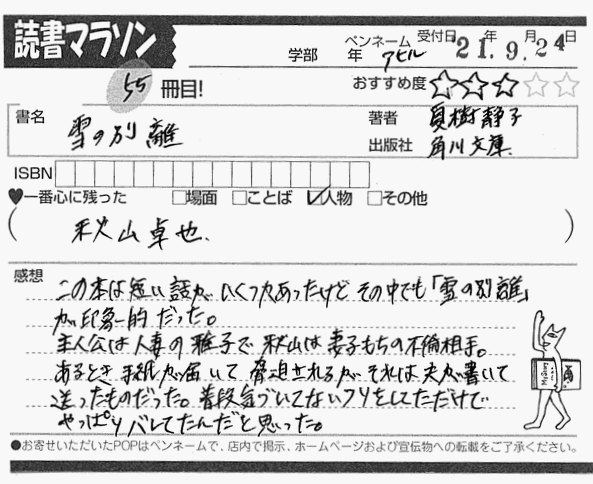 読書マラソン
学部 年 ペンネーム アヒル 受付日 21年 9月 24日
55 冊目! おすすめ度 ★★★☆☆
書名 雪の別離 著者 夏樹静子
出版社 角川文庫.
ISBN
♥一番心に残った □場面 □ことば ☑人物 □その他
( 秋山卓也. )
感想
この本は短い話がいくつかあったけどその中でも「雪の別離」
が印象的だった。
主人公は人妻の雅子で秋山は妻子もちの不倫相手。
あるとき手紙が届いて脅迫されるがそれは夫が書いて
送ったものだった。普段気づいてないフリをしてただけで
やっぱりバレてたんだと思った。
●お寄せいただいたPOPはペンネームで、店内で掲示、ホームページおよび宣伝物への転載をご了承ください。